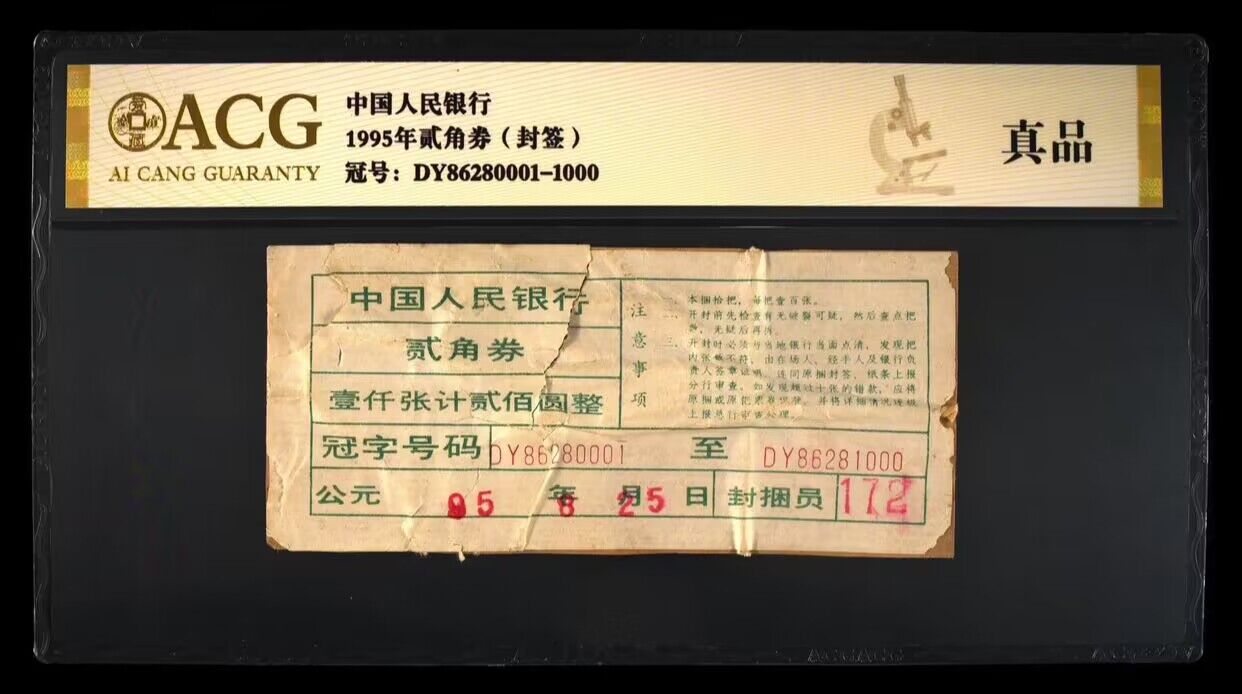 ACG
AI CANG GUARANTY
中国人民银行
1995年贰角券(封签)
冠号:DY86280001-1000
真品
中国人民银行
贰角券
壹仟张计贰佰圆整
注意事项
一、本捆拾把,每把壹百张。
二、开封前先检查有无破裂可疑,然后查点把
数,无疑后再拆。
三、开封时必须与当地银行当面点清,发现把
内张数不符,由在场人、经手人及银行负
责人签章证明,连同原捆封签、纸条上报
分行审查。如发现超过十张的错款,应将
原捆或原把票券保存,并将详细情况逐级
上报总行审查处理。
冠字号码 DY86280001 至 DY86281000
公元 95 年 8 月 25 日 封捆员 172